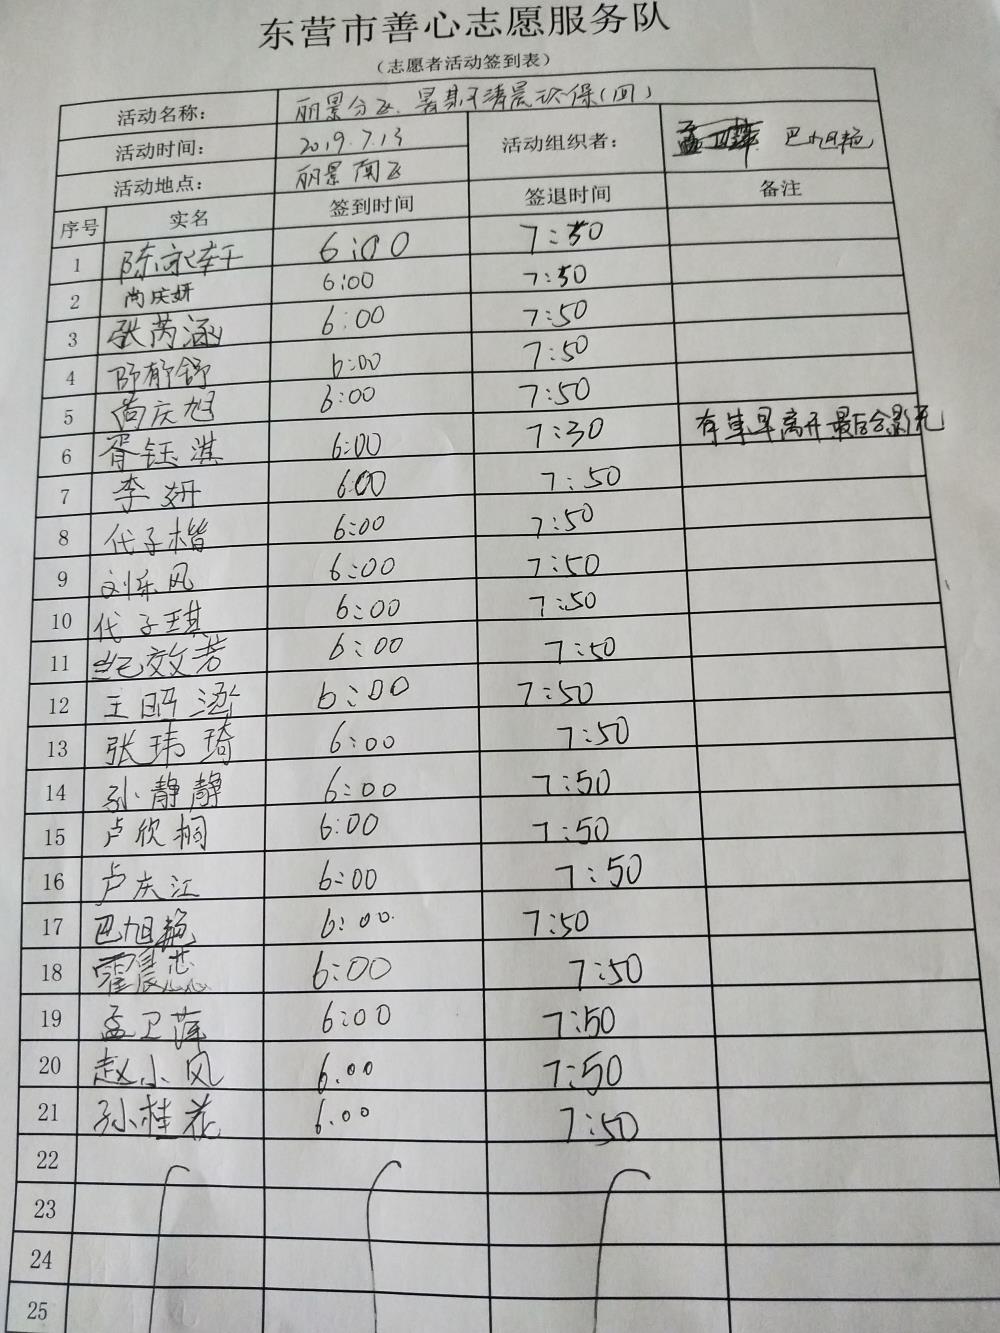 东营市善心志愿服务队
(志愿者活动签到表)
活动名称: 丽景分队 暑期 清晨环保(四)
活动时间: 2019.7.13 活动组织者: 巴旭艳
活动地点: 丽景南区
序号 实名 签到时间 签退时间 备注
1 陈泳轩 6:00 7:50
2 尚庆妍 6:00 7:50
3 张芮涵 6:00 7:50
4 郁舒 6:00 7:50
5 尚庆旭 6:00 7:50
6 胥钰淇 6:00 7:30 有事早离开最后合影无
7 李妍 6:00 7:50
8 代子楷 6:00 7:50
9 刘乐风 6:00 7:50
10 代子琪 6:00 7:50
11 纪效芳 6:00 7:50
12 王昭 6:00 7:50
13 张玮琦 6:00 7:50
14 孙静静 6:00 7:50
15 卢欣桐 6:00 7:50
16 卢庆江 6:00 7:50
17 巴旭艳 6:00 7:50
18 霍晨蕊 6:00 7:50
19 孟卫萍 6:00 7:50
20 赵小凤 6:00 7:50
21 孙桂花 6:00 7:50
22
23
24
25